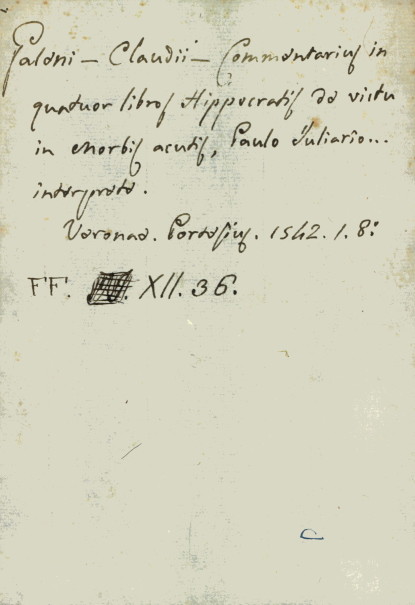 Galeni - Claudii - Commentarius in
quatuor libros Hippocratis de victu
in Morbis acutis, Paulo Juliario...
interprete.
Veronae. Portesius. 1542. 1. 8:
FF. XII. 36.
C